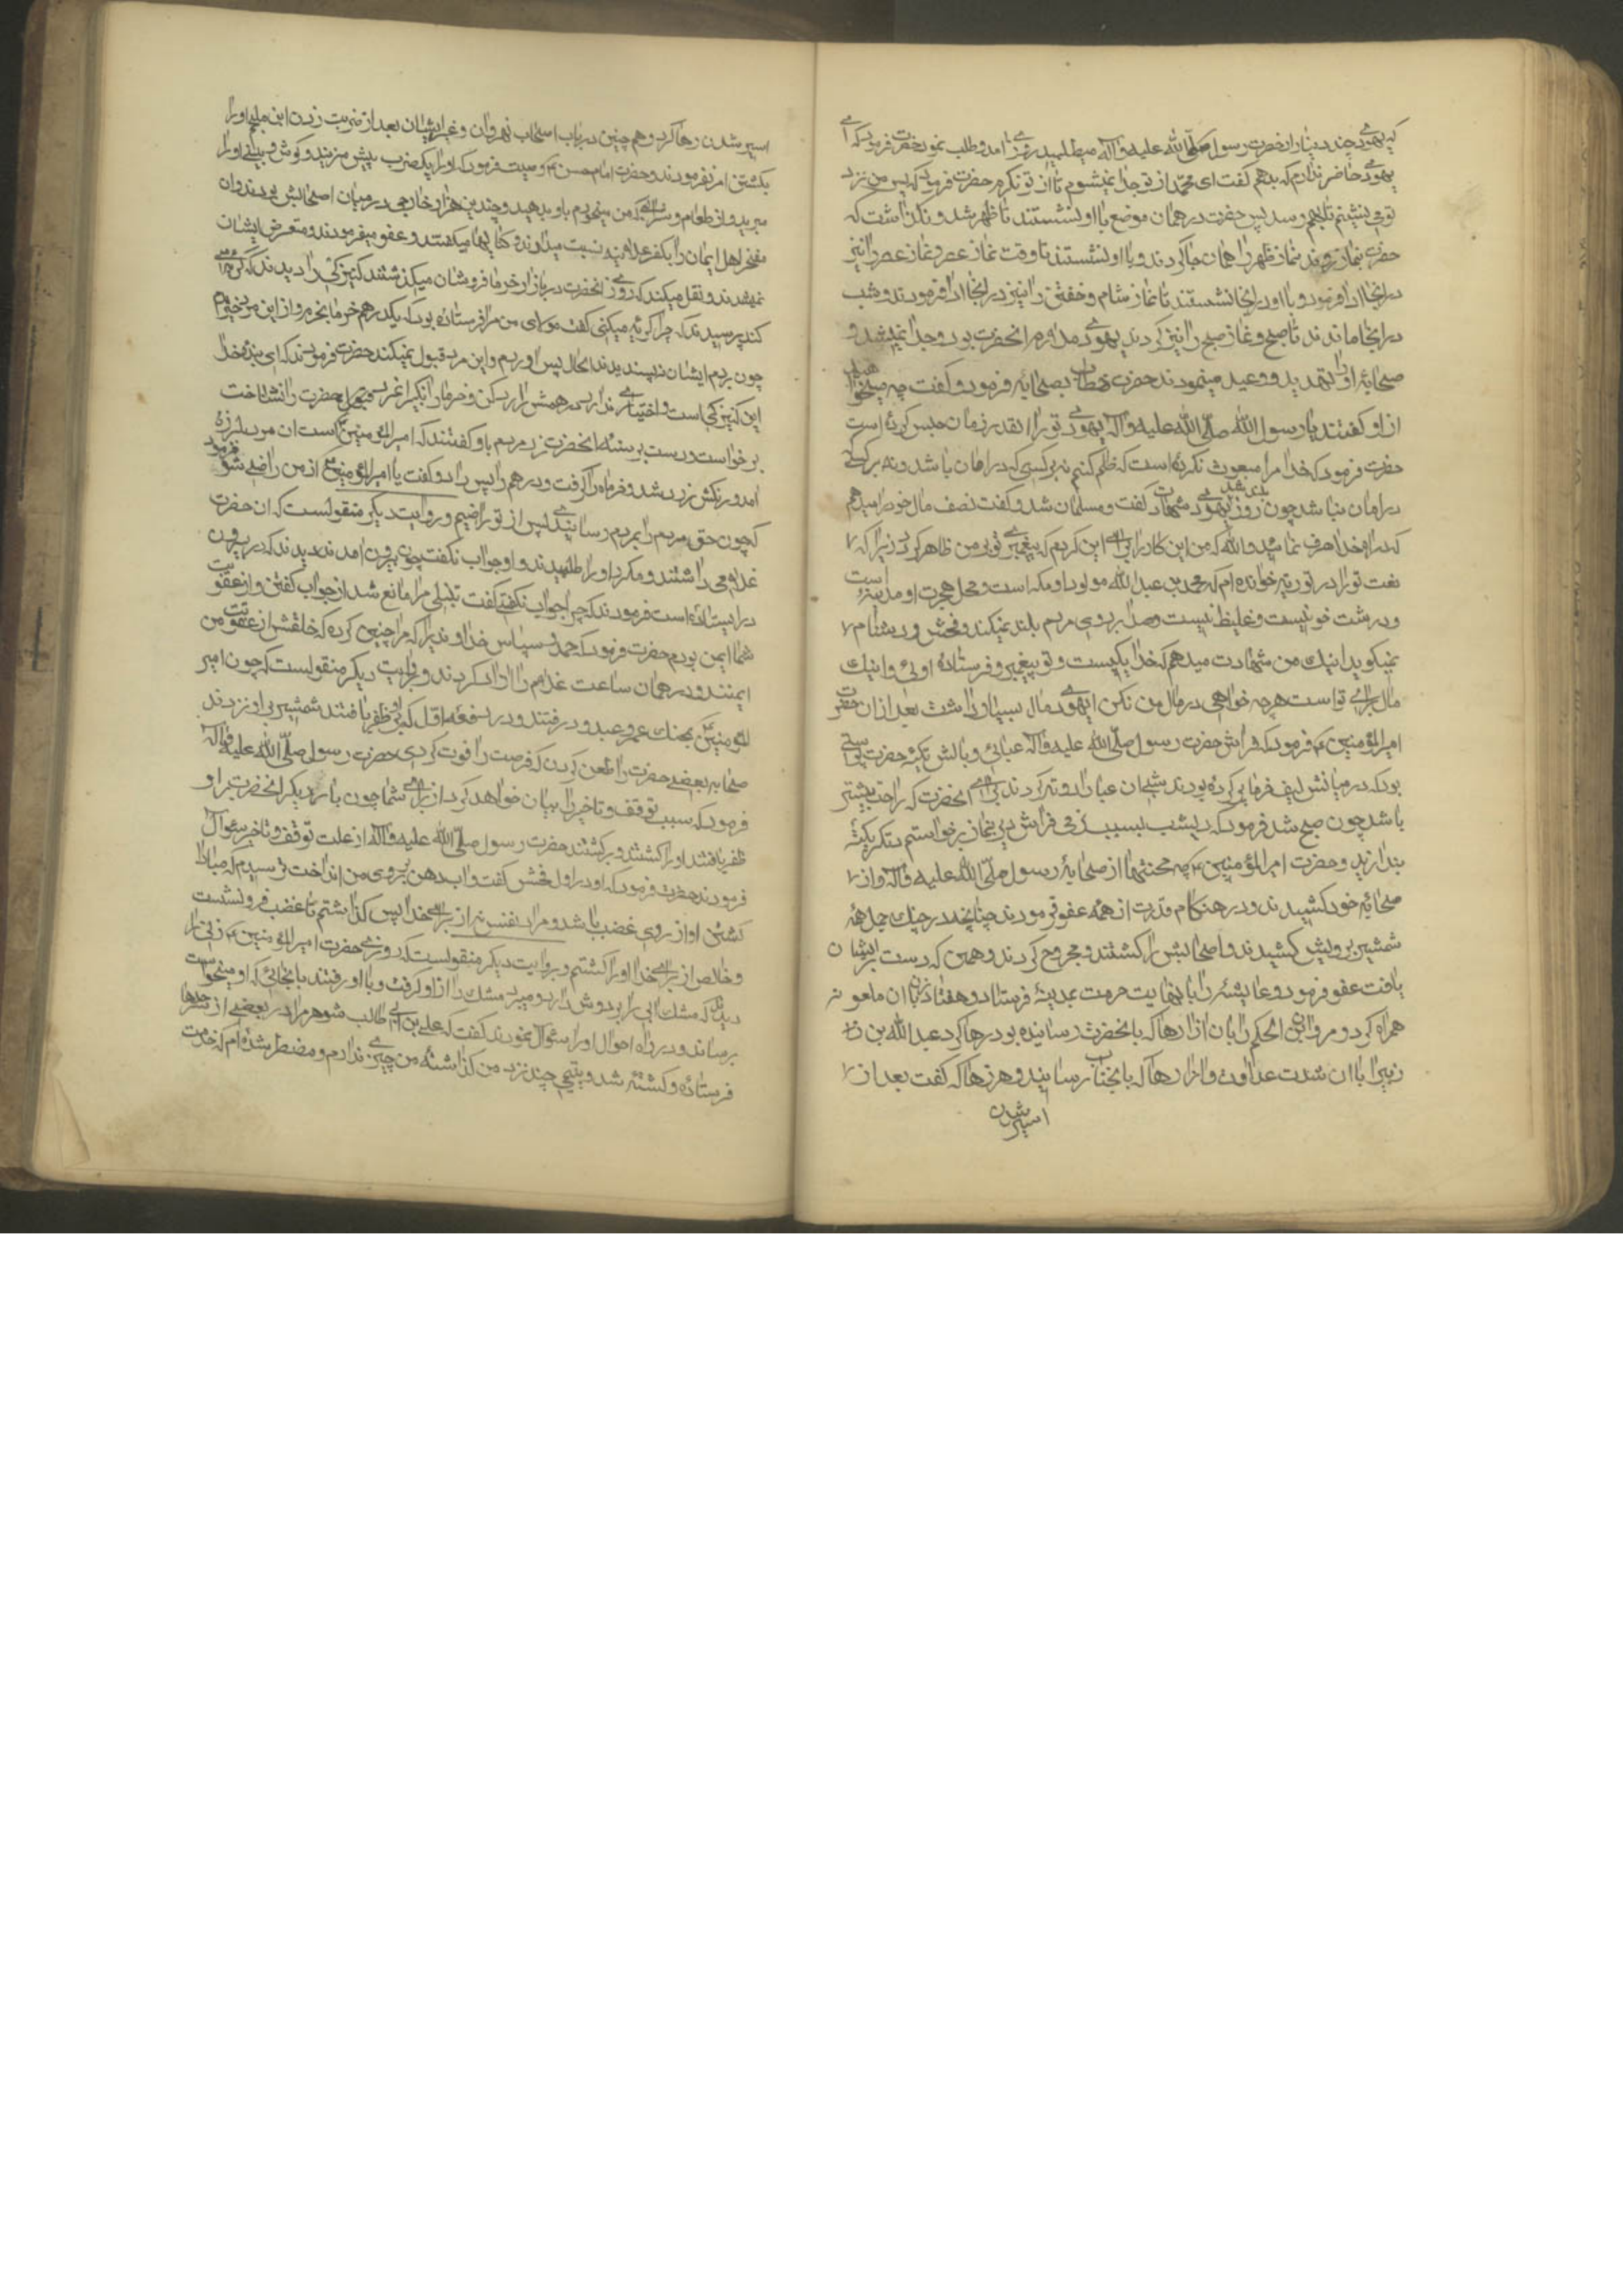 که یهودی چند دینار از حضرت رسول صلی الله علیه وآله میطلبید روزی آمد و طلب نمود حضرت فرمود که ای
یهودی حاضر ندارم که بدهم گفت ای محمد از تو جدا نمیشوم تا از تو نگیرم حضرت فرمود که پس من نزد
تو می نشینم تا بهم رسد پس حضرت در همان موضع با او نشستند تا ظهر شد و نگذاشت که
حضرت بنماز روند نماز ظهر را همان جا کردند و با او نشستند تا وقت نماز عصر و نماز عصر را نیز
در انجا ادا فرمود و با او در انجا نشستند تا نماز شام و خفتن را نیز در انجا ادا فرمودند و شب
در انجا ماندند تا صبح و نماز صبح را نیز کردند یهودی ملازم انحضرت بود و جدا نمیشد و
صحابه او را تهدید و وعید مینمودند حضرت خطاب بصحابه فرمود و گفت چه میخواهید
از او گفتند یا رسول الله صلی الله علیه وآله یهودی تو را انقدر زمان حبس کرده است
حضرت فرمود که خدا مرا مبعوث نکرده است که ظلم کنم نه بر کسی که در امان باشد و نه بر کسی که
در امان نباشد چون روز بلند شد یهودی شهادت گفت و مسلمان شد و گفت نصف مال خود را میدهم
که در راه خدا صرف نمائید والله که من این کار برای این کردم که پیغمبری تو بر من ظاهر گردد زیرا که
نعت تو را در توریة خوانده ام که محمد بن عبدالله مولود او مکه است و محل هجرت او مدینه است
و درشت خو نیست و غلیظ نیست و صدا بر روی مردم بلند نمیکند و فحش و دشنام
نمیگوید اینك من شهادت میدهم که خدا یکیست و تو پیغمبر و فرستادهٔ اوئی و اینك
مال برای تو است هرچه خواهی در مال من بکن یهودی مال بسیار داشت بعد از ان حضرت
امیرالمؤمنین ع فرمود که فراش حضرت رسول صلی الله علیه وآله عبائی و بالش تکیهٔ حضرت پوستی
بود که در میانش لیف خرما پر کرده بودند شبی ان عبا را دوته کردند برای انحضرت که راحت بیشتر
باشد چون صبح شد فرمود که دیشب بسبب نرمی فراش دیر بنماز برخواستم دیگر یکته
بندازید و حضرت امیرالمؤمنین ع چه محنتها از صحابهٔ رسول صلی الله علیه وآله و از
صحابهٔ خود کشیدند و در هنگام قدرت از همه عفو فرمودند چنانچه در جنك جمل همهٔ
شمشیر بر رویش کشیدند و اصحابش را کشتند و مجروح کردند و همین که دست بر ایشان
یافت عفو فرمود و عایشه را با نهایت حرمت بمدینه فرستاد و هفتاد زن با ان ملعونه
همراه کرد و مروان بن الحکم را بان ازارها که بانحضرت رسانیده بود رها کرد عبدالله بن
زبیر را با ان شدت عداوت و ازارها که بانجناب رسانید و هرزها که گفت بعد از
اسیر شدن
اسیر شدن رها کرد و هم چنین در باب اصحاب نهروان و غیر ایشان بعد از ضربت زدن ابن ملجم او را
بکشتن امر نفرمودند و حضرت امام حسن ع وصیت فرمود که او را یکضرب بیش مزنید و گوش و بینی او را
مبرید و از طعام و شرابی که من میخورم باو بدهید و چندین هزار خارجی در میان اصحابش بودند و ان
مفخر اهل ایمان را بکفر علانیه نسبت میدادند و کنایهها میگفتند و عفو میفرمودند و متعرض ایشان
نمیشدند و نقل میکنند که روزی انحضرت در بازار خرما فروشان میگذشتند کنیزکی را دیدند که گریه می
کند پرسیدند که چرا گریه میکنی گفت مولای من مرا فرستاده بود که یکدرهم خرما بخرم و از این مرد خریدم
چون بردم ایشان نپسندیدند الحال پس اوردم و این مرد قبول نمیکند حضرت فرمودند که ای بندهٔ خدا
این کنیزکی است و اختیاری ندارد درهمش را رد کن و خرما را بگیر
برخواست و دست بر سینه انحضرت زد مردم باو گفتند که امیرالمؤمنین است ان مرد بلرزه
امد و رنگش زرد شد و خرما را گرفت و درهم را پس داد و گفت یا امیرالمؤمنین ع از من راضی شو فرمود
که چون حق مردم را بمردم رسانیدی پس از تو راضیم و روایت دیگر منقولست که ان حضرت
غلامی داشتند و مکرر او را طلبیدند و او جواب نگفت چون بیرون امدند دیدند که در بیرون
در ایستاده است فرمودند که چرا جواب نگفتی گفت تنبلی مرا مانع شد از جواب گفتن و از عقوبت
شما ایمن بودم حضرت فرمود که حمد و سپاس خداوندیرا که مرا چنین کرده که خلقش از عقوبت من
ایمنند و در همان ساعت غلام را ازاد کردند و بروایت دیگر منقولست که چون امیر
المؤمنین ع بجنك عمرو عبدود رفتند و در دفعه اول که بر او ظفر یافتند شمشیر بر او نزدند
صحابه بعضی حضرت را طعن کردن که فرصت را فوت کردی حضرت رسول صلی الله علیه وآله
فرمود که سبب توقف و تاخیر را بیان خواهد کرد از برای شما چون بار دیگر انحضرت بر او
ظفر یافتند او را کشتند و برگشتند حضرت رسول صلی الله علیه وآله از علت توقف و تاخیر سئوال
فرمودند حضرت فرمود که او در اول فحش گفت و اب دهن بر روی من انداخت ترسیدم که مبادا
کشتن او از روی غضب باشد و مراد نفس نه از برای خدا پس گذاشتم تا غضب فرونشست
و خالص از برای خدا او را کشتم و بروایت دیگر منقولست که روزی حضرت امیرالمؤمنین ع زنی را
دیدند که مشك ابی را بر دوش دارد و میبرد مشك را از او گرفت و با او رفتند بانجائی که او میخواست
برساند و در راه احوال او را سئوال نمودند گفت که علی بن ابی طالب شوهر مرا در بعضی از سرحدها
فرستاده و کشته شد و یتیمی چند نزد من گذاشته من چیزی ندارم و مضطر شده ام که خدمت